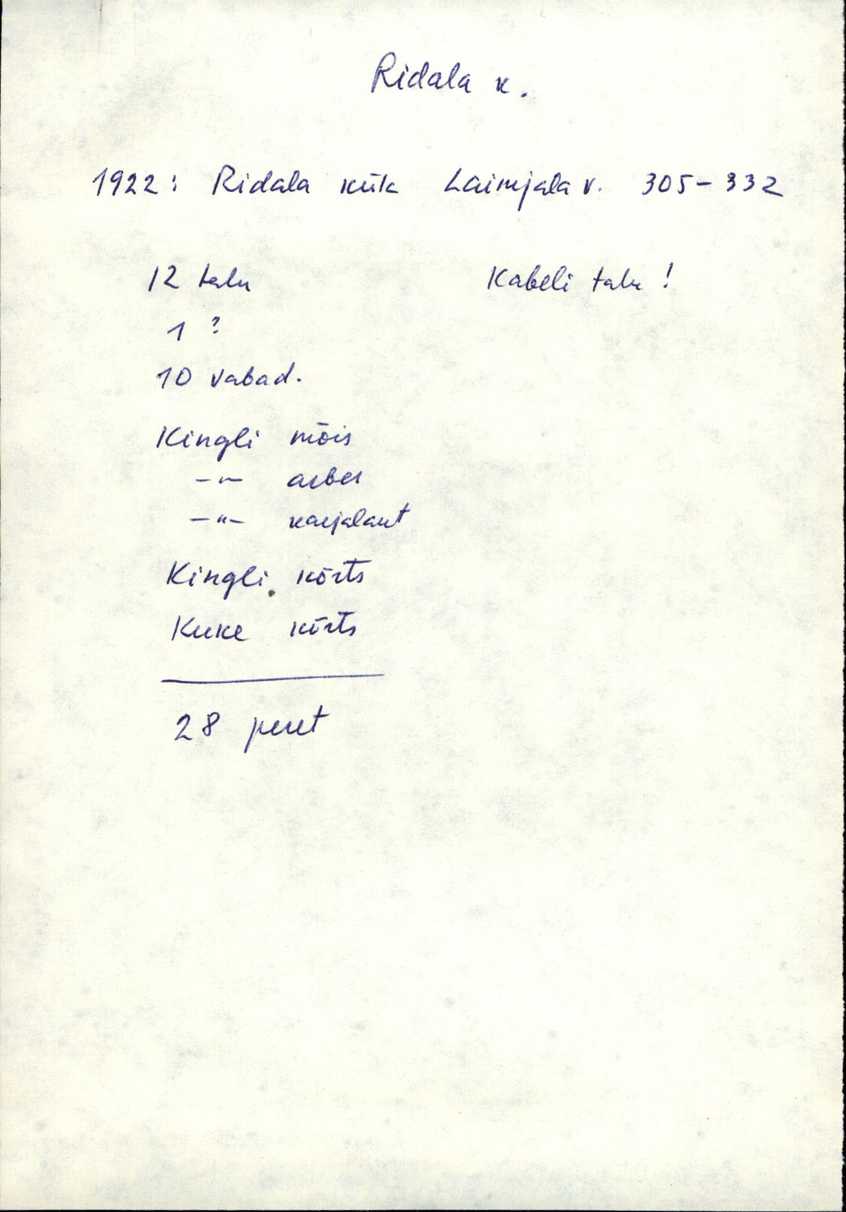 Ridala k.
1922: Ridala küla Laimjala v. 305-332
12 talu Kabeli talu!
1 ?
10 vabad.
Kingli mõis
-"-
-"- karjalaut
Kingli kõrts
Kuke kõrts
28 peret